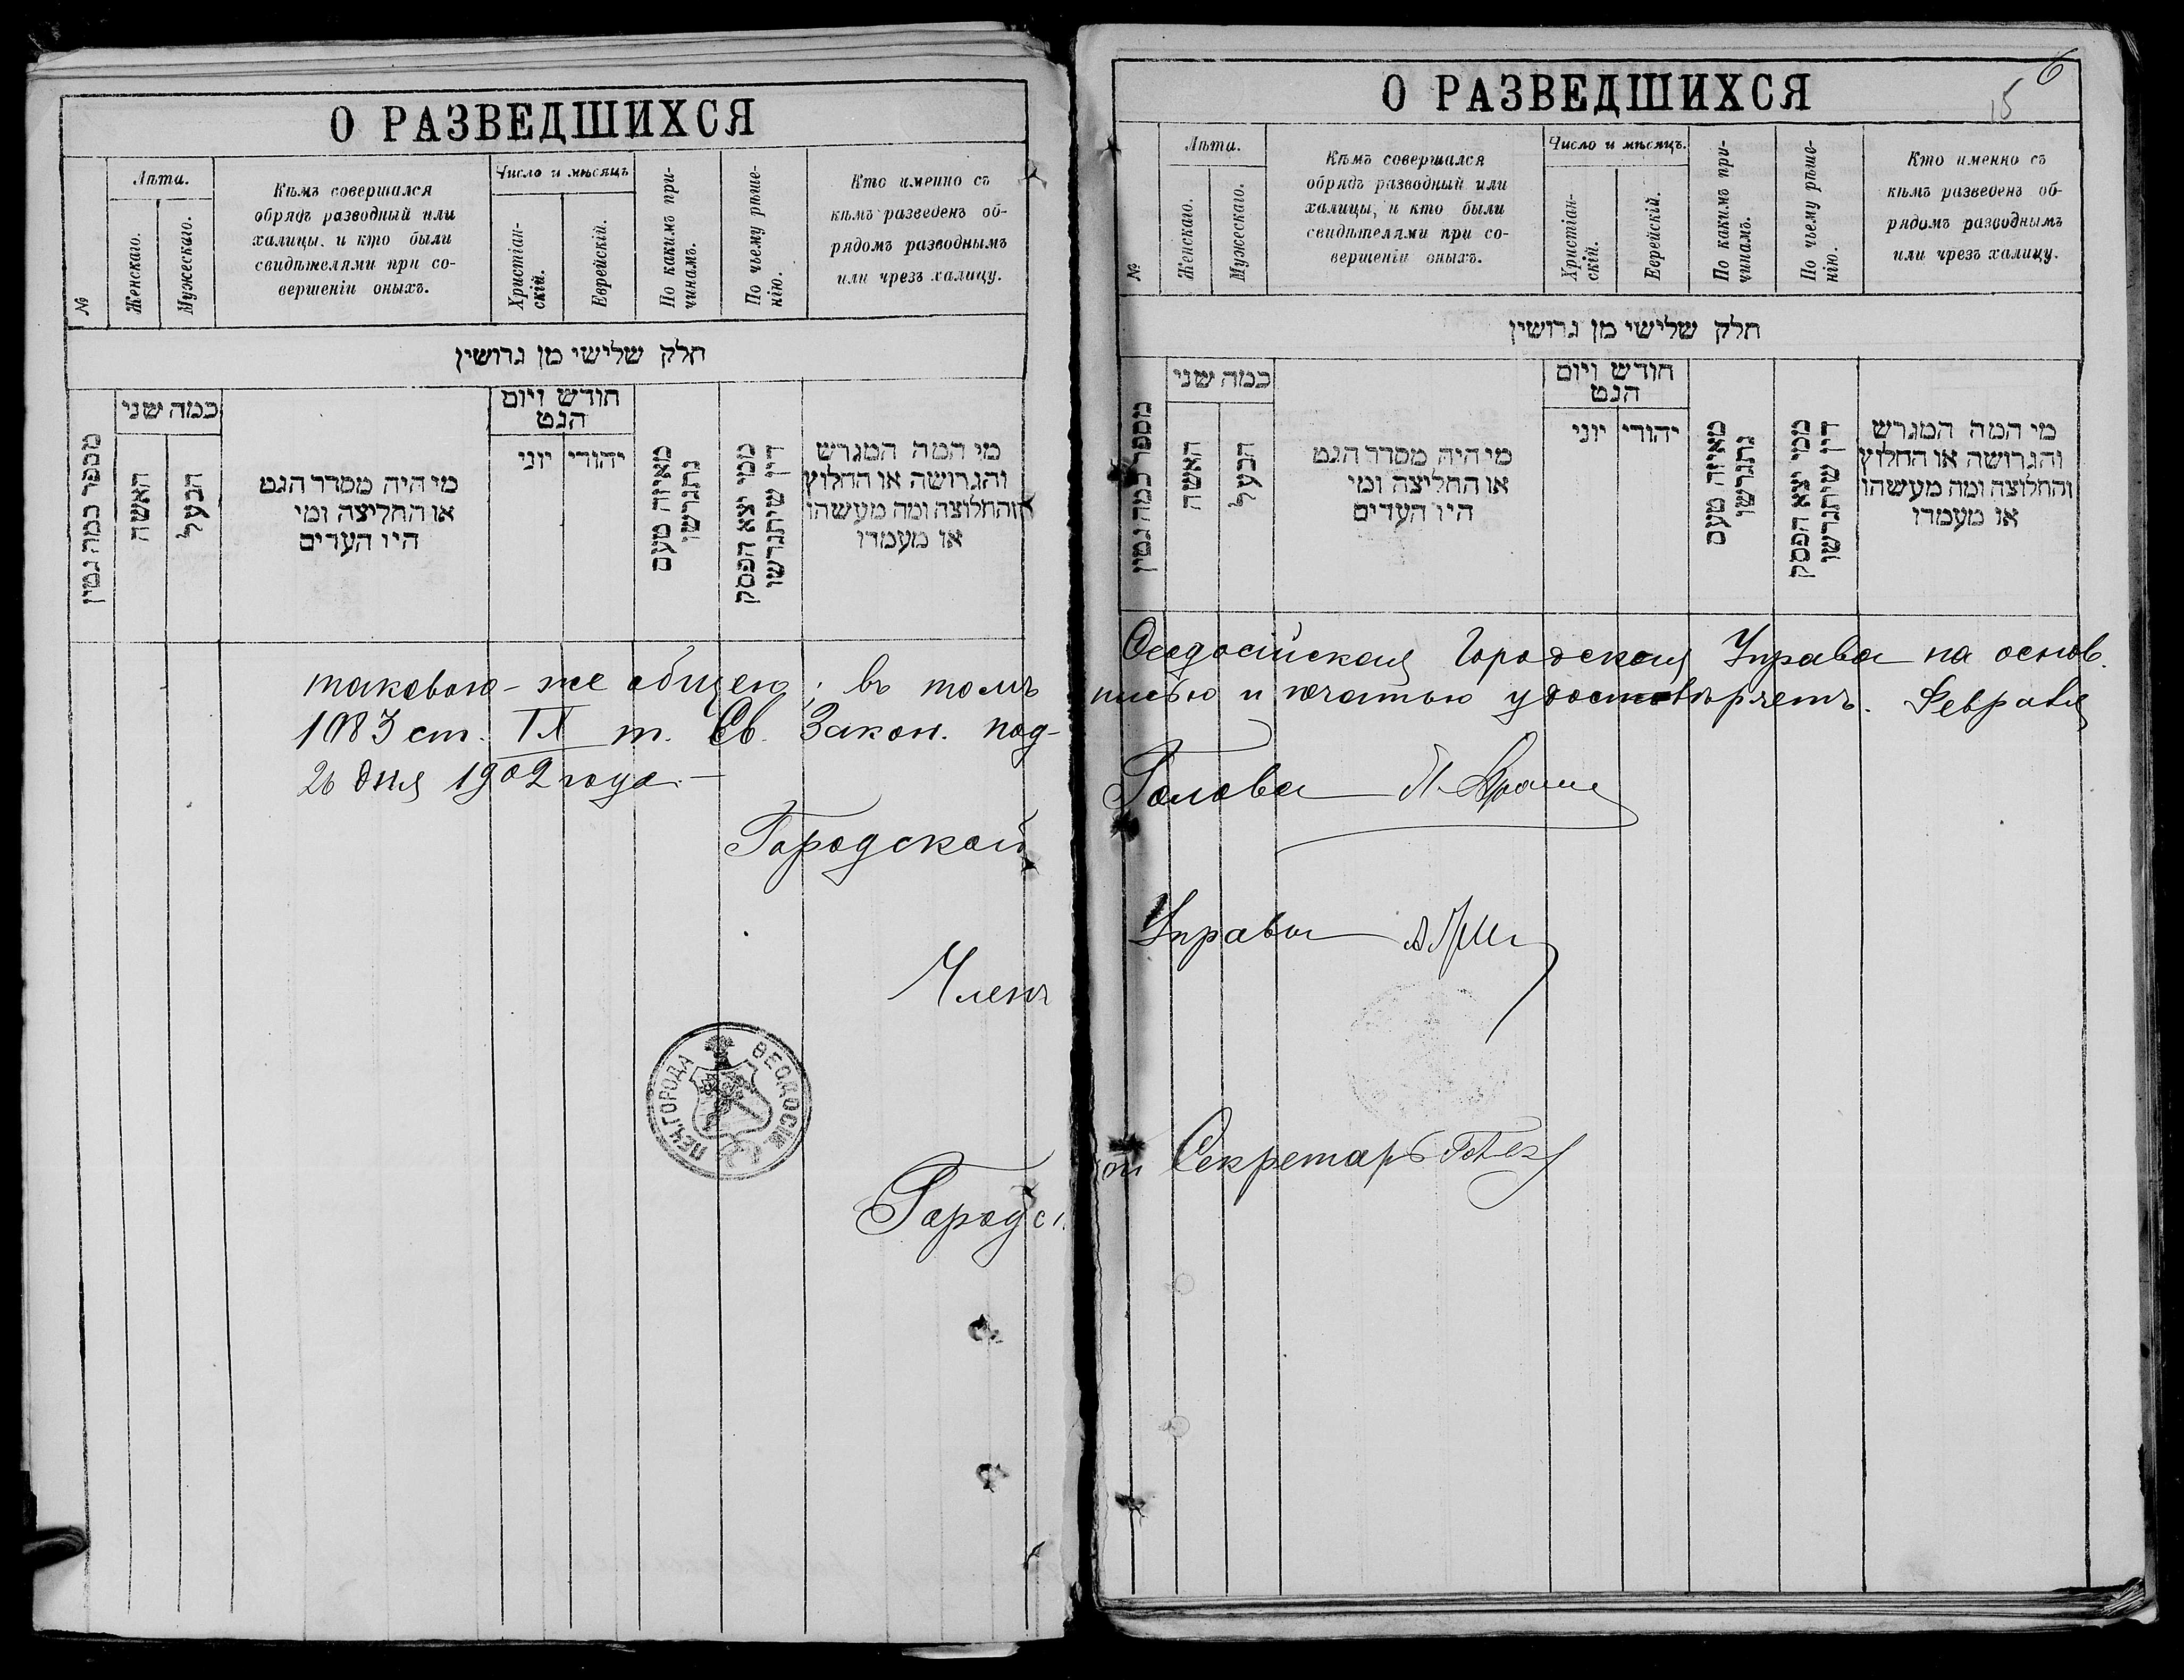 О РАЗВЕДШИХСЯ
№
Лѣта.
Женскаго.
Мужескаго.
Кѣмъ совершался
обрядъ разводный или
халицы, и кто были
свидѣтелями при со-
вершеніи оныхъ.
Число и мѣсяцъ
Христіан-
скій.
Еврейскій.
По какимъ при-
чинамъ.
По чьему рѣше-
нію.
Кто именно съ
кѣмъ разведенъ об-
рядомъ разводнымъ
или чрезъ халицу.
חלק שלישי מן גרושין
מספר כמה גטין
כמה שני
האשה
הבעל
מי היה מסדר הגט
או החליצה ומי
היו העדים
חודש ויום
הגט
יהודי יוני
מאיזה טעם
נתגרשו
ממי יצא הפסק
דין שיתגרשו
מי המה המגרש
והגרושה או החלוץ
והחלוצה ומה מעשהו
או מעמדו
таковою-же общею; въ томъ
1083 ст. IX т. Св. Закон. под-
26 дня 1902 года.—
Городской
Членъ
ПЕЧ. ГОРОДА ѲЕОДОСІИ
Городс
6
15
О РАЗВЕДШИХСЯ
№
Лѣта.
Женскаго.
Мужескаго.
Кѣмъ совершался
обрядъ разводный или
халицы, и кто были
свидѣтелями при со-
вершеніи оныхъ.
Число и мѣсяцъ.
Христіан-
скій.
Еврейскій.
По какимъ при-
чинамъ.
По чьему рѣше-
нію.
Кто именно съ
кѣмъ разведенъ об-
рядомъ разводнымъ
или чрезъ халицу.
חלק שלישי מן גרושין
מספר כמה גטין
כמה שני
האשה
הבעל
מי היה מסדר הגט
או החליצה ומי
היו העדים
חודש ויום
הגט
יהודי יוני
מאיזה טעם
נתגרשו
ממי יצא הפסק
דין שיתגרשו
מי המה המגרש
והגרושה או החלוץ
והחלוצה ומה מעשהו
או מעמדו
Ѳеодосійская Городская Управа на основ.
писью и печатью удостовѣряетъ. Февраля
Голова
Управы
ой Секретарь